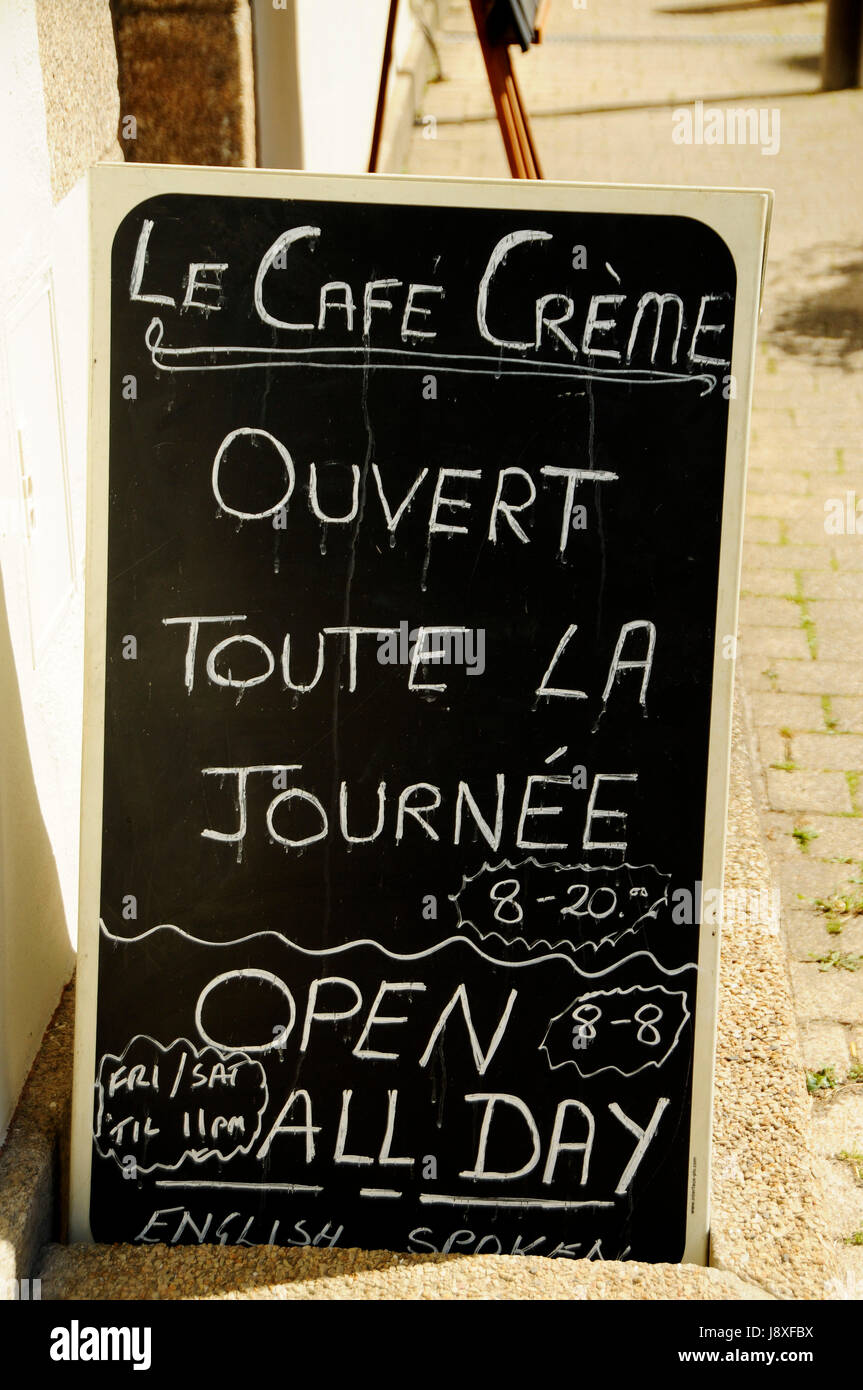 Le Café Crème
Ouvert
Toute la
Journée
8-20.00
Open 8-8
Fri/Sat
'til 11pm
All Day
English Spoken
alamy
Image ID: J8XFBX
www.alamy.com